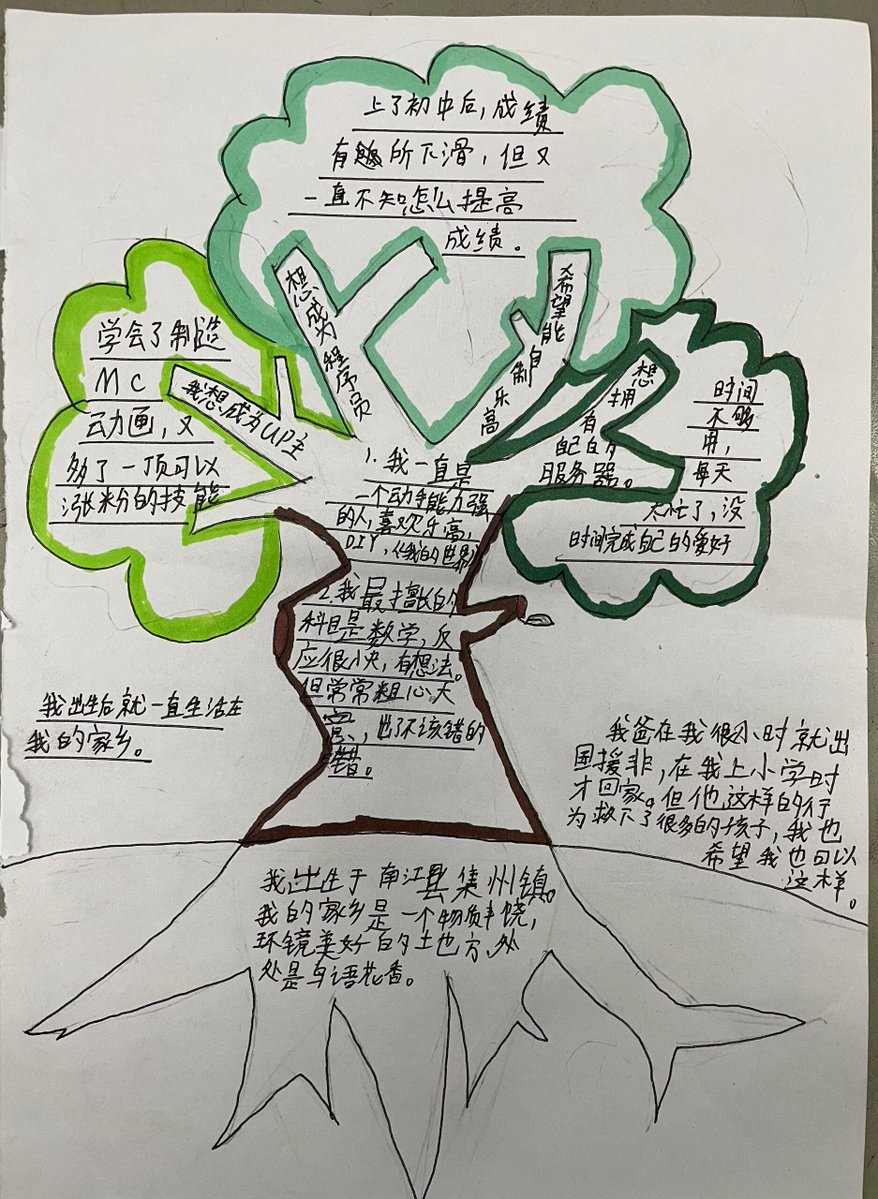 上了初中后，成绩
有所下滑，但又
一直不知怎么提高
成绩。
想成为程序员
希望能自制乐高
学会了制造
MC
动画，又
多了一项可以
涨米分的技能
我想成为UP主
想拥有自己的服务器。
时间
不够
用，
每天
太忙了，没
时间完成自己的爱好
1. 我一直是
一个动手能力强
的人，喜欢乐高，
DIY，《我的世界》
2. 我最擅长的
科目是数学，反
应很快，有想法。
但常常粗心大
意，出了不该错的
错。
我出生后就一直生活在
我的家乡。
我爸在我很小时就出
国援非，在我上小学时
才回家。但他这样的行
为救下了很多的孩子，我也
希望我也可以
这样。
我出生于南江县集州镇。
我的家乡是一个物质丰饶，
环镜美好的土地方，处
处是鸟语花香。